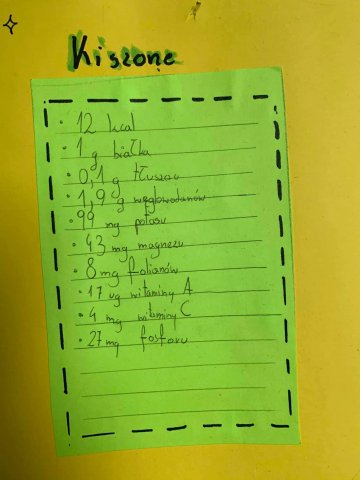 Kiszone
• 12 kcal
• 1 g białka
• 0,1 g tłuszczu
• 1,9 g węglowodanów
• 99 mg potasu
• 43 mg magnezu
• 8 mg folianów
• 17 ug witaminy A
• 4 mg witaminy C
• 27 mg fosforu